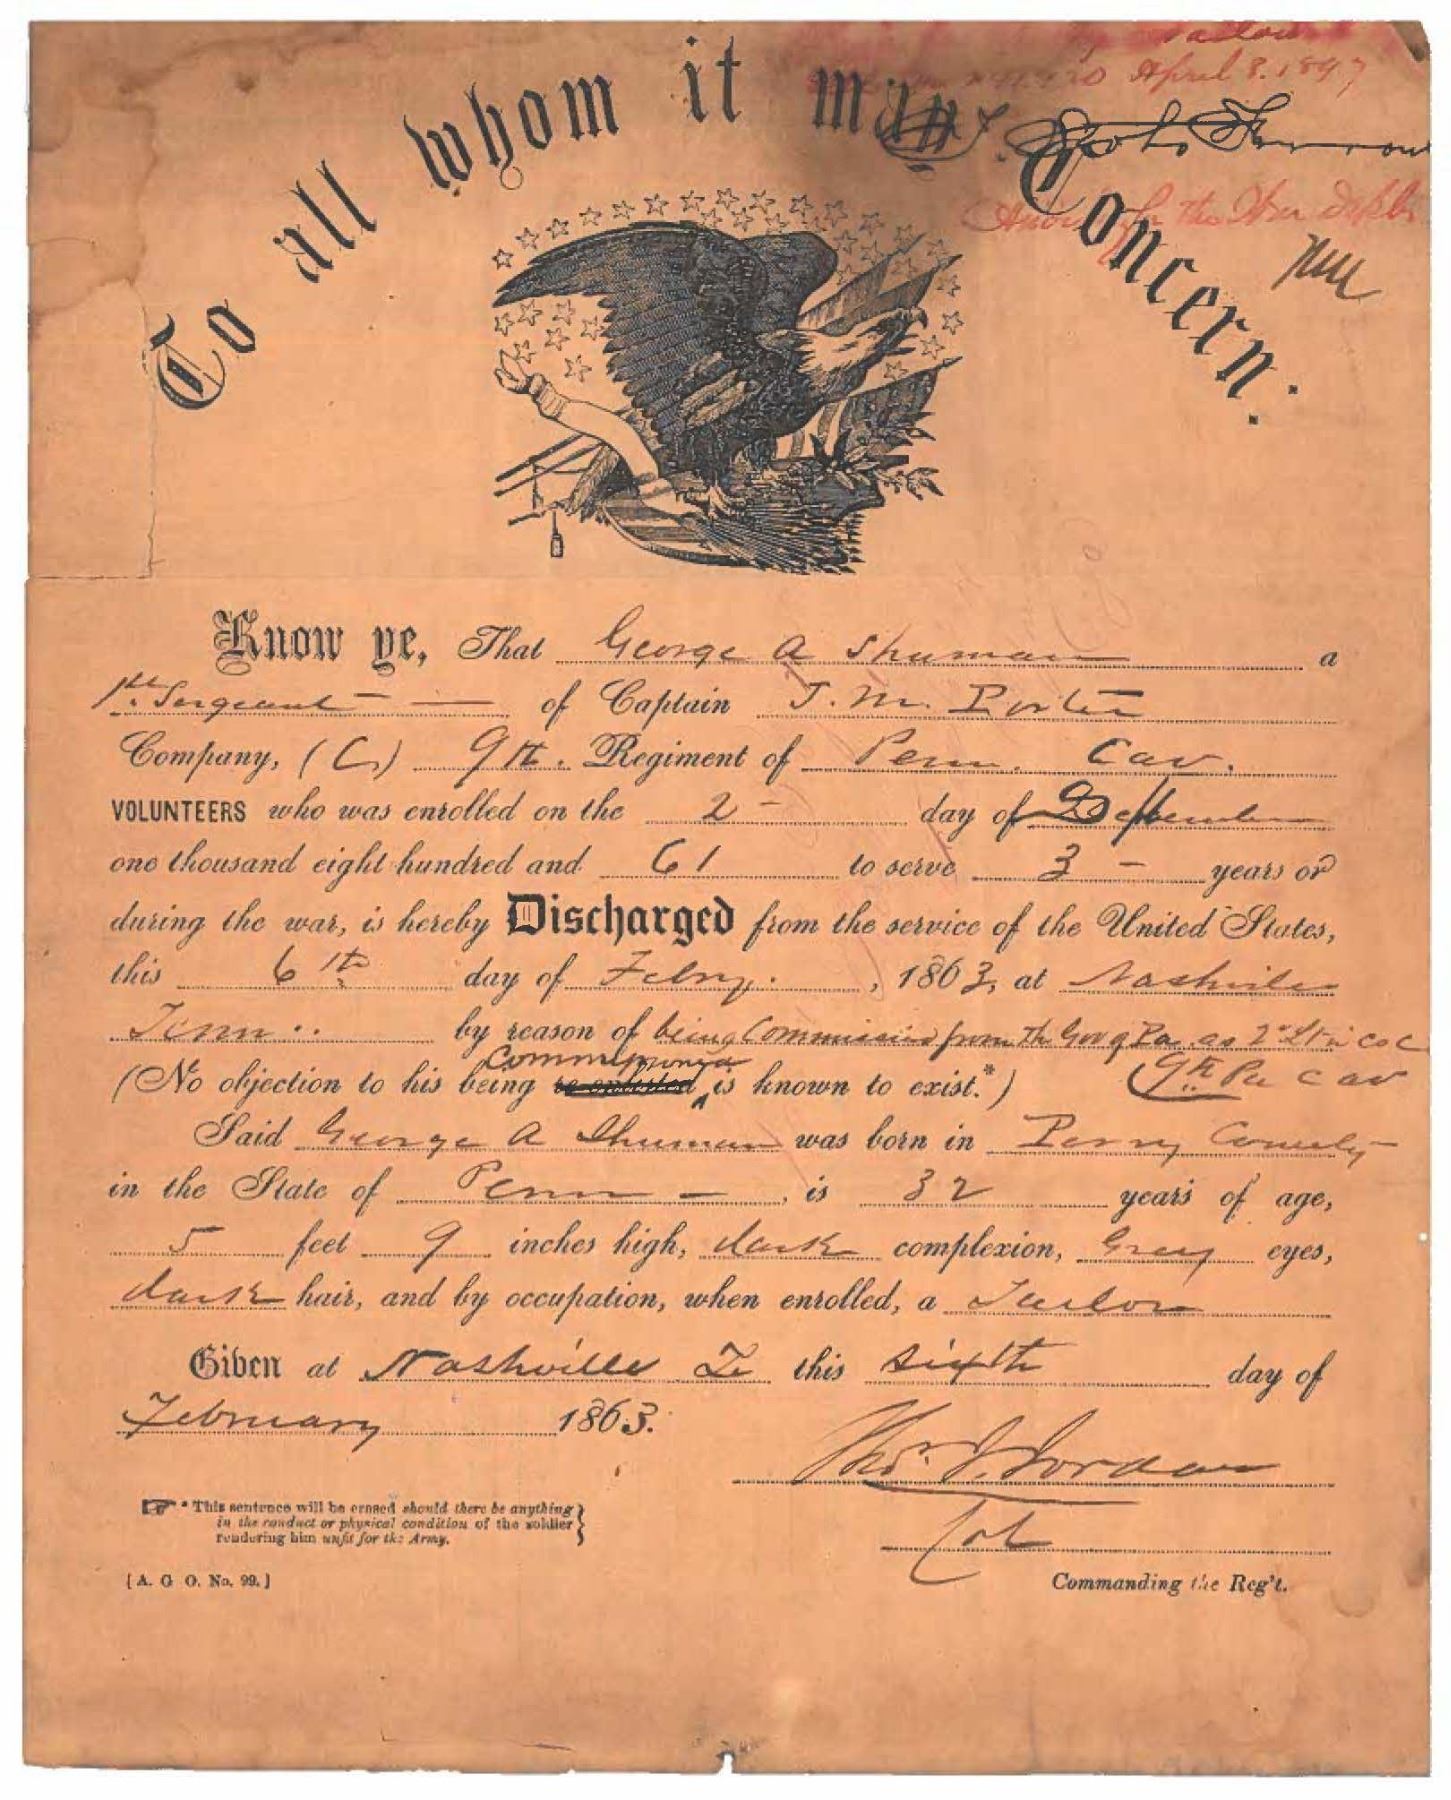 April 8. 1897
To all whom it may Concern:
the War Dept
Know ye, That George A Shuman a
1st. Sergeant of Captain T. M. Porter
Company, (C,) 9th. Regiment of Penn. Cav.
VOLUNTEERS who was enrolled on the 2 - day of September
one thousand eight hundred and 61 to serve 3 - years or
during the war, is hereby Discharged from the service of the United States,
this 6th day of Febry. , 1863, at Nashville
Tenn.. by reason of being Commission from the Gov of Pa as 2d Lt in Co C
9th Pa Cav
Commissioned
(No objection to his being re-enlisted is known to exist.*)
Said George A Shuman was born in Perry County
in the State of Penn - , is 32 years of age,
5 feet 9 inches high, dark complexion, Gray eyes,
dark hair, and by occupation, when enrolled, a Tailor
Given at Nashville Te this sixth day of
February 1863.
Thos. J. Jordan
Col
Commanding the Reg't.
* This sentence will be erased should there be anything
in the conduct or physical condition of the soldier
rendering him unfit for the Army.
[A. G. O. No. 99.]